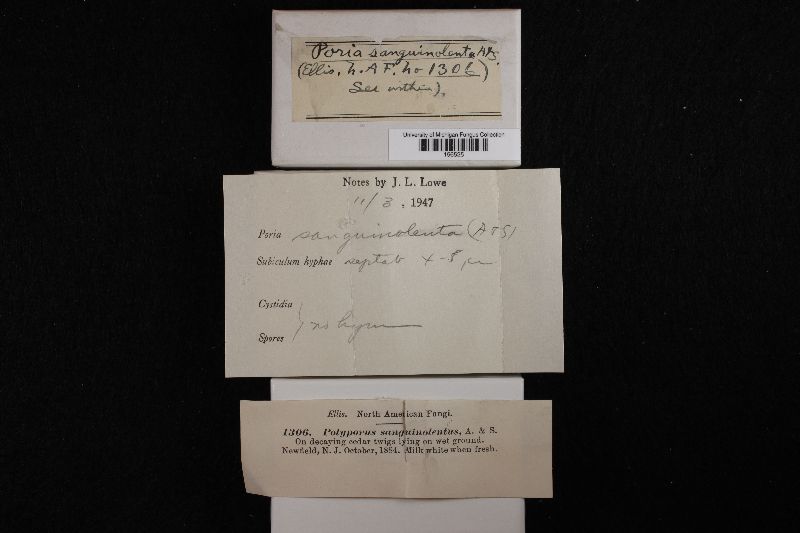 Poria sanguinolenta A&S.
(Ellis, N.A.F. no 1306)
See within).
University of Michigan Fungus Collection
Notes by J. L. Lowe
11/3, 1947
Poria sanguinolenta (A & S)
Subiculum hyphae septate 4-8 μ
Cystidia
no hym
Spores
Ellis. North American Fungi.
1306. Polyporus sanguinolentus, A. & S.
On decaying cedar twigs lying on wet ground.
Newfield, N. J. October, 1884. Milk white when fresh.